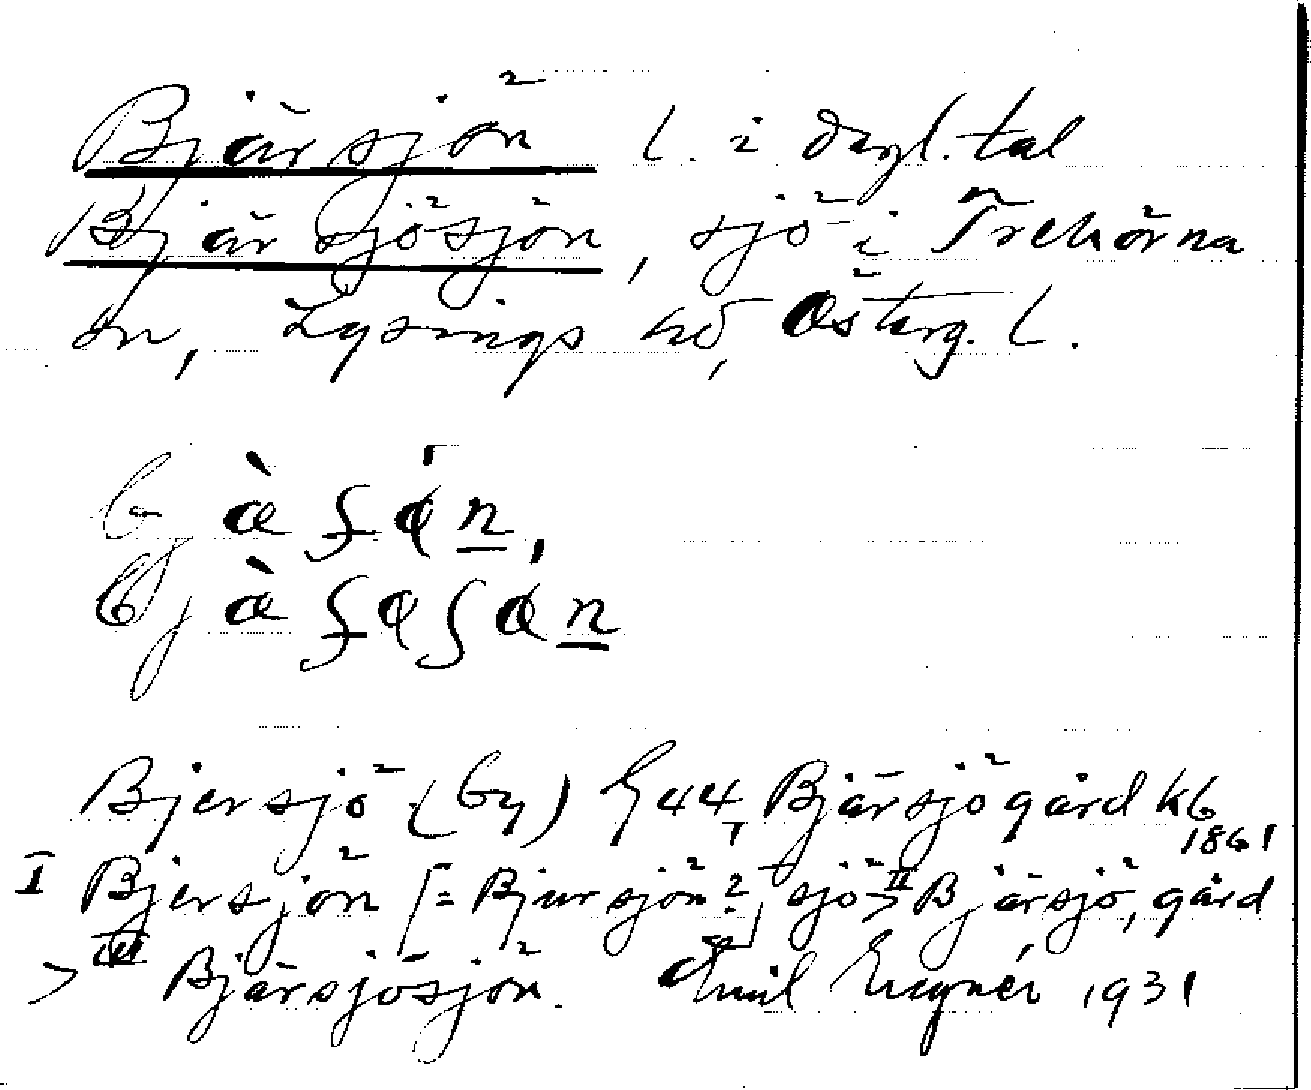 Bjärsjön l. i dagl. tal
Bjärsjösjön, sjö i Trehörna
sn, Lysings hd, Österg. l.
bjàʃøn,
bjàʃøʃøn
Bjersjö (by) G 44, Bjärsjögård kb 1861
I Bjersjön [= Bjursjön?, sjö > II Bjärsjö, gård
> III Bjärsjösjön. Emil 1931